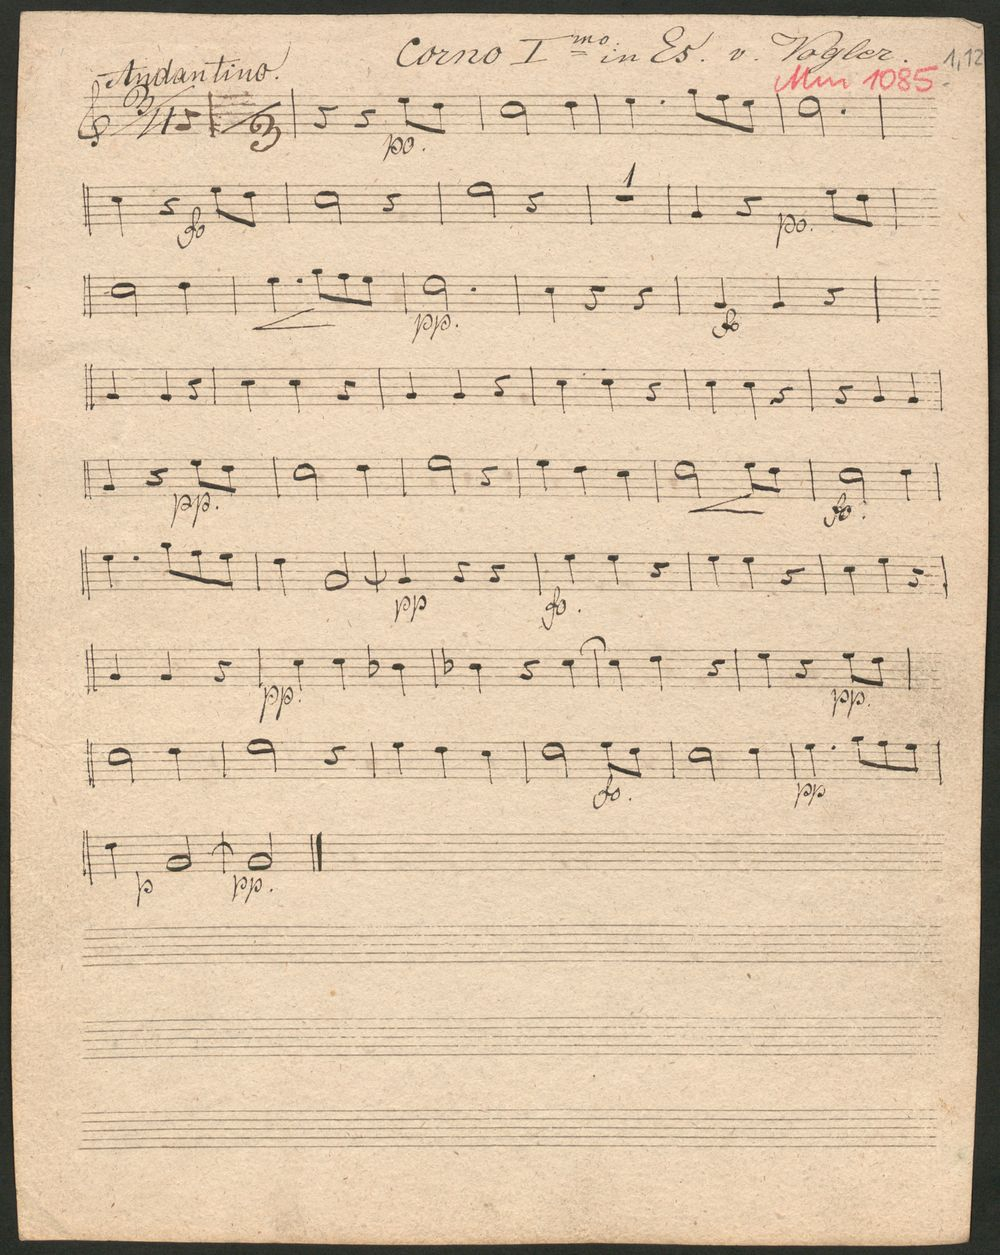 Corno I mo in Es. v. Vogler. 1,12
Andantino. Mm 1085
3/4 3
po.
1
fo po.
pp. fo
pp. fo.
pp fo.
pp. pp.
fo. pp
p pp.